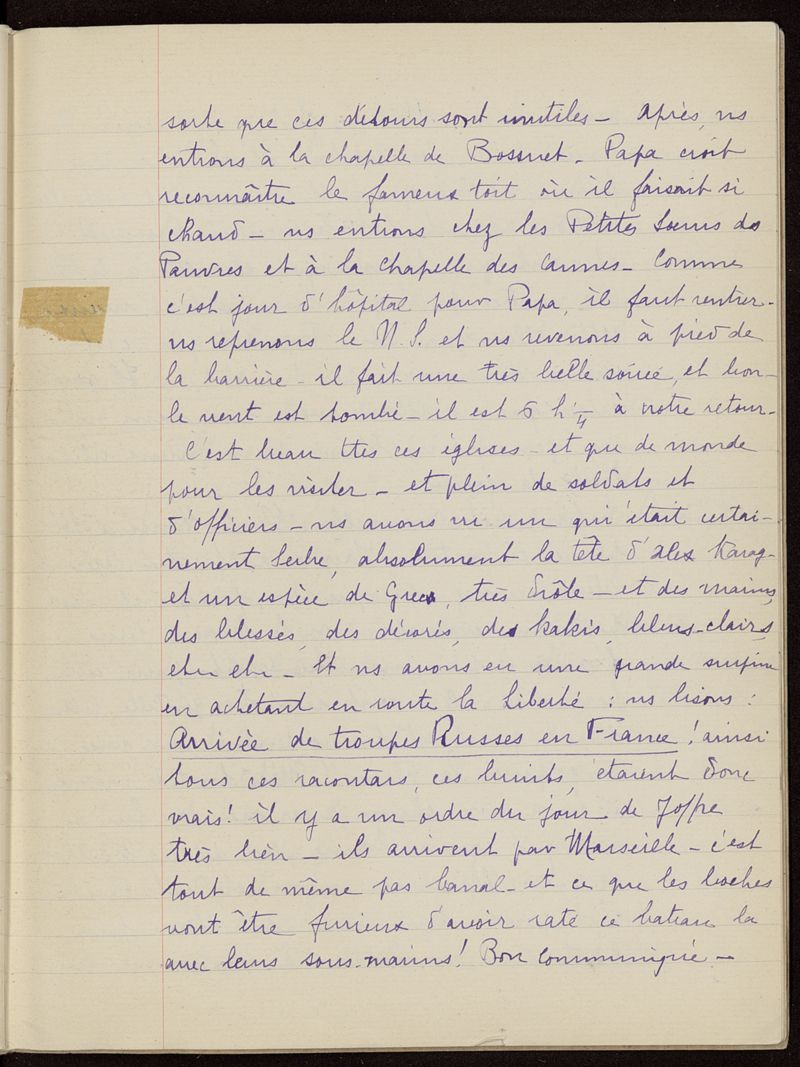 sorte que ces détours sont inutiles – Après, ns
entrons à la chapelle de Bossuet – Papa croit
reconnaître le fameux toit où il faisait si
chaud – ns entrons chez les Petites Sœurs des
Pauvres et à la chapelle des Carmes – Comme
c'est jour d'hôpital pour Papa, il faut rentrer –
ns reprenons le N. S. et ns revenons à pied de
la barrière – il fait une très belle soirée, et bon –
le vent est tombé – il est 5 h 1/4 à notre retour –
C'est beau ttes ces églises – et que de monde
pour les visiter – et plein de soldats et
d'officiers – ns avons vu un qui était certai-
nement Serbe, absolument la tête d'Alex Karag –
et un espèce de Grec, très drôle – et des marins,
des blessés, des décorés, des kakis, bleus-clairs,
etc etc – Et ns avons eu une grande surprise
en achetant en route la Liberté : ns lisons :
Arrivée de troupes Russes en France ! ainsi
tous ces racontars, ces bruits, étaient donc
vrais ! il y a un ordre du jour de Joffre
très bien – ils arrivent par Marseille – c'est
tout de même pas banal – et ce que les boches
vont être furieux d'avoir raté ce bateau là
avec leurs sous-marins ! Bon communiqué –